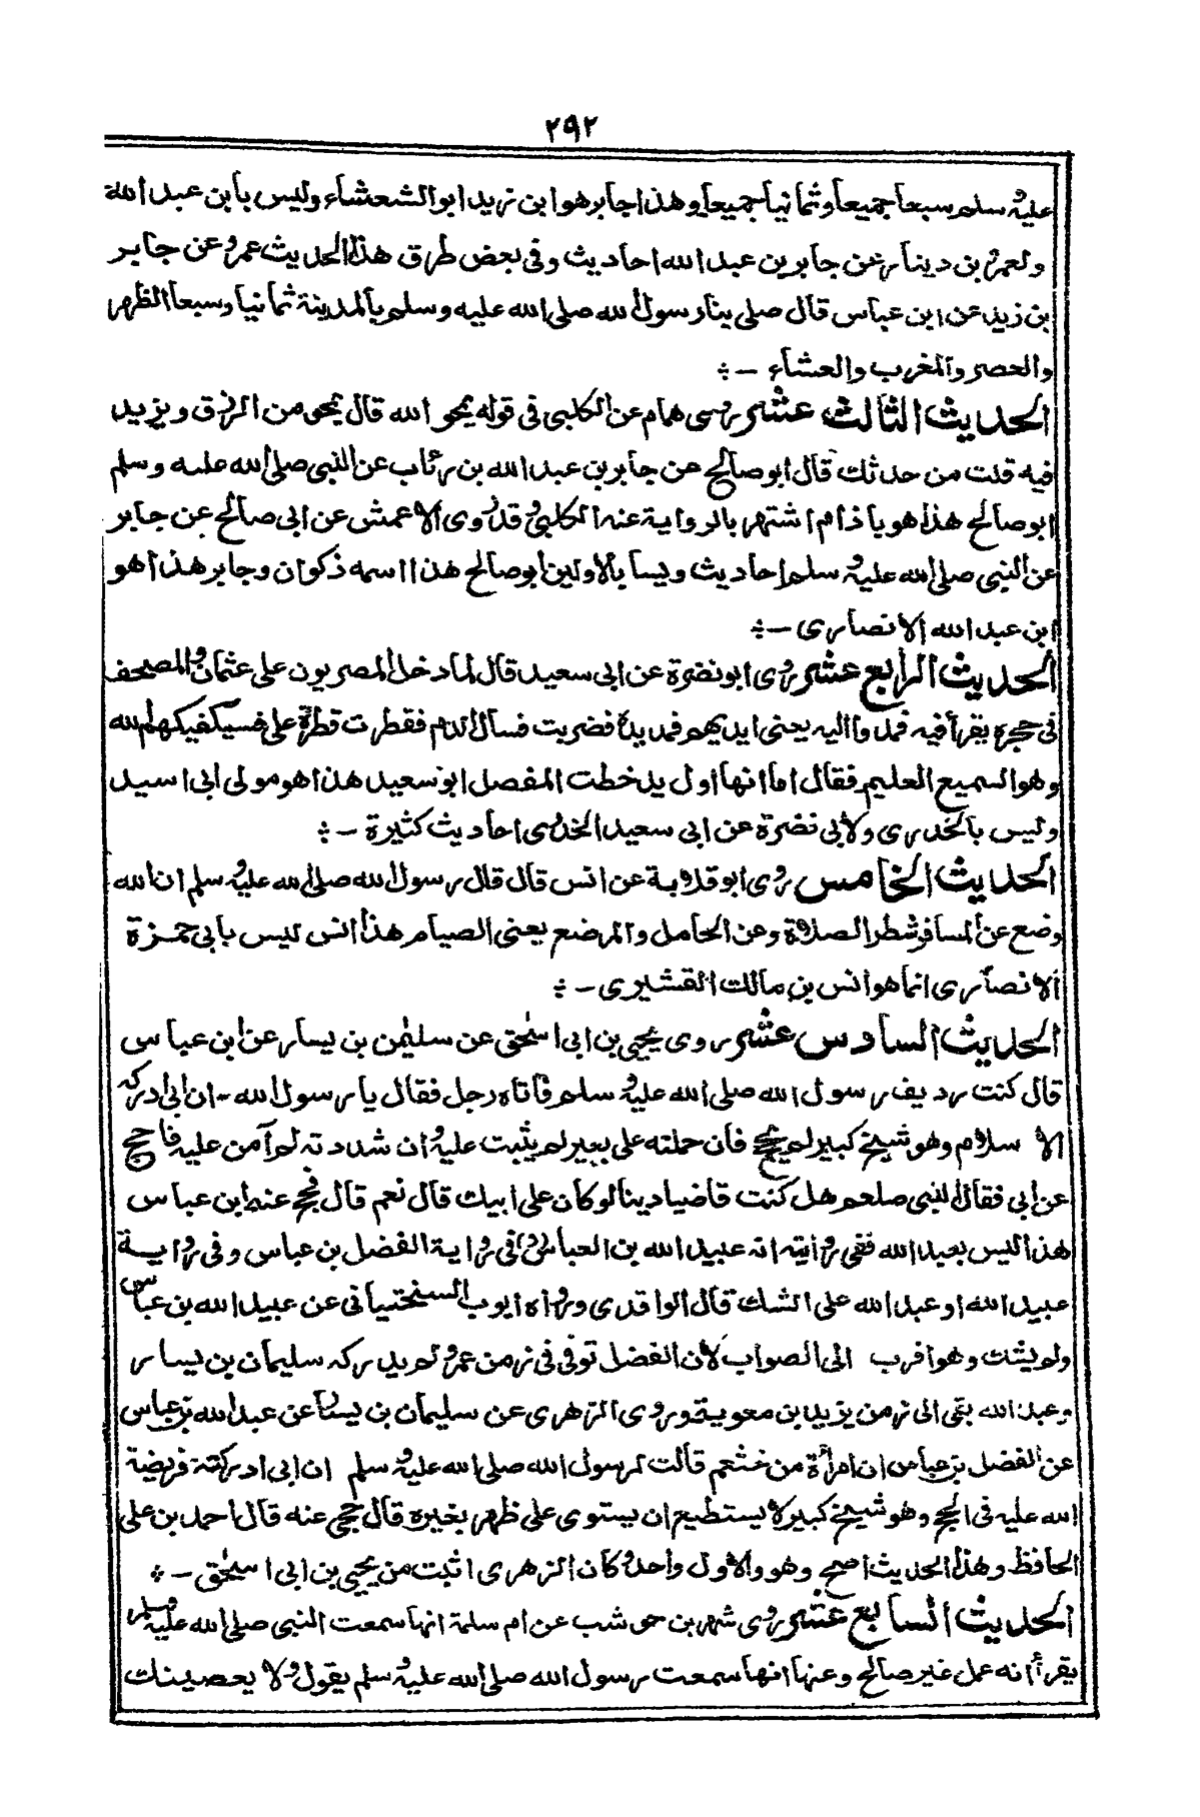 ٢٩٢
عليه وسلم سبعا جميعا وثمانيا جميعا وهذا جابر هو ابن زيد ابو الشعثاء وليس بابن عبد الله
ولعمرو بن دينار عن جابر بن عبد الله احاديث وفى بعض طرق هذا الحديث عمرو عن جابر
بن زيد عن ابن عباس قال صلى بنا رسول الله صلى الله عليه وسلم بالمدينة ثمانيا وسبعا الظهر
والعصر والمغرب والعشاء -:
الحديث الثالث عشر روى همام عن الكلبى فى قوله يمحو الله قال يمحو من الرزق ويزيد
فيه قلت من حدثك قال ابو صالح عن جابر بن عبد الله بن رئاب عن النبى صلى الله عليه وسلم
ابو صالح هذا هو باذام اشتهر بالرواية عنه الكلبى وقد روى الاعمش عن ابى صالح عن جابر
عن النبى صلى الله عليه وسلم احاديث وليسا بالاولين ابو صالح هذا اسمه ذكوان وجابر هذا هو
ابن عبد الله الانصارى -:
الحديث الرابع عشر روى ابو نضرة عن ابى سعيد قال لما دخل المصريون على عثمان والمصحف
فى حجره يقرأ فيه فمدوا اليه يعنى ايديهم فمد يده فضربت فسال الدم فقطرت قطرة على فسيكفيكهم الله
وهو السميع العليم فقال اما انها اول يد خطت المفصل ابو سعيد هذا هو مولى ابى اسيد
وليس بالخدرى ولابى نضرة عن ابى سعيد الخدرى احاديث كثيرة -:
الحديث الخامس روى ابو قلابة عن انس قال قال رسول الله صلى الله عليه وسلم ان الله
وضع عن المسافر شطر الصلاة وعن الحامل والمرضع يعنى الصيام هذا انس ليس بابى حمزة
الانصارى انما هو انس بن مالك القشيرى -:
الحديث السادس عشر روى يحيى بن ابى اسحٰق عن سليمٰن بن يسار عن ابن عباس
قال كنت رديف رسول الله صلى الله عليه وسلم فاتاه رجل فقال يا رسول الله - ان ابى ادركه
الاسلام وهو شيخ كبير لم يحج فان حملته على بعير لم يثبت عليه وان شددته لم آمن عليه فاحج
عن ابى فقال النبى صلعم هل كنت قاضيا دينا لو كان على ابيك قال نعم قال فحج عنه ابن عباس
هذا ليس بعبد الله ففى روايته انه عبيد الله بن العباس (و) فى رواية الفضل بن عباس وفى رواية
عبيد الله او عبد الله على الشك قال الواقدى ورواه ايوب السختيانى عن عبيد الله بن عباس
ولم يشك وهو اقرب الى الصواب لان الفضل توفى فى زمن عمر ولم يدركه سليمان بن يسار
وعبد الله بقى الى زمن يزيد بن معوية وروى الزهرى عن سليمان بن يسار عن عبد الله بن عباس
عن الفضل بن عباس ان امرأة من خثعم قالت لرسول الله صلى الله عليه وسلم ان ابى ادركته فريضة
الله عليه فى الحج وهو شيخ كبير لا يستطيع ان يستوى على ظهر بعيره قال حجى عنه قال احمد بن على
الحافظ وهذا الحديث اصح وهو والاول واحد وكان الزهرى اثبت من يحيى بن ابى اسحٰق -:
الحديث السابع عشر روى شهر بن حوشب عن ام سلمة انها سمعت النبى صلى الله عليه وسلم
يقرأ انه عمل غير صالح وعنها انها سمعت رسول الله صلى الله عليه وسلم يقول ولا يعصينك